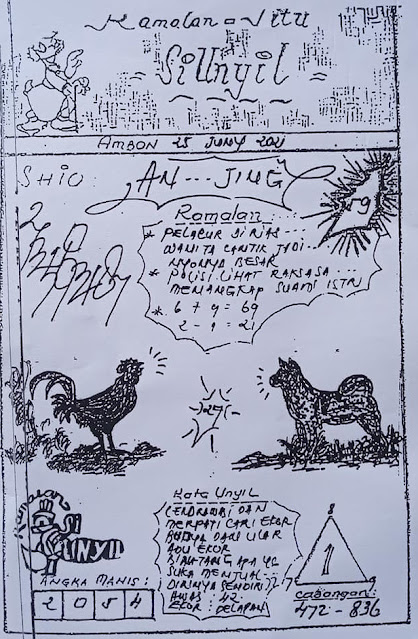 Ramalan - Jitu
Si Unyil
AMBON 25 JUNY 2021
SHIO: AN---JING
Ramalan:
* PELACUR DIRIAS...
WANITA CANTIK JADI
NYONYA BESAR
* POLISI LIHAT RAKSASA...
MENANGKAP SUAMI ISTRI
* 6 + 9 = 69
2 - 1 = 21
Kata Unyil
CENDRAWASIH DAN
MERPATI CARI EKOR
BUAYA DAN ULAR
ADU EKOR
BINATANG APA YG
SUKA MENJUAL
DIRINYA SENDIRI
AWAS: 42
EKOR: DELAPAN
Ramalan
SI
UNYIL
ANGKA MANIS:
2 0 5 4
8
1
7 9
Cabangan:
472 - 836